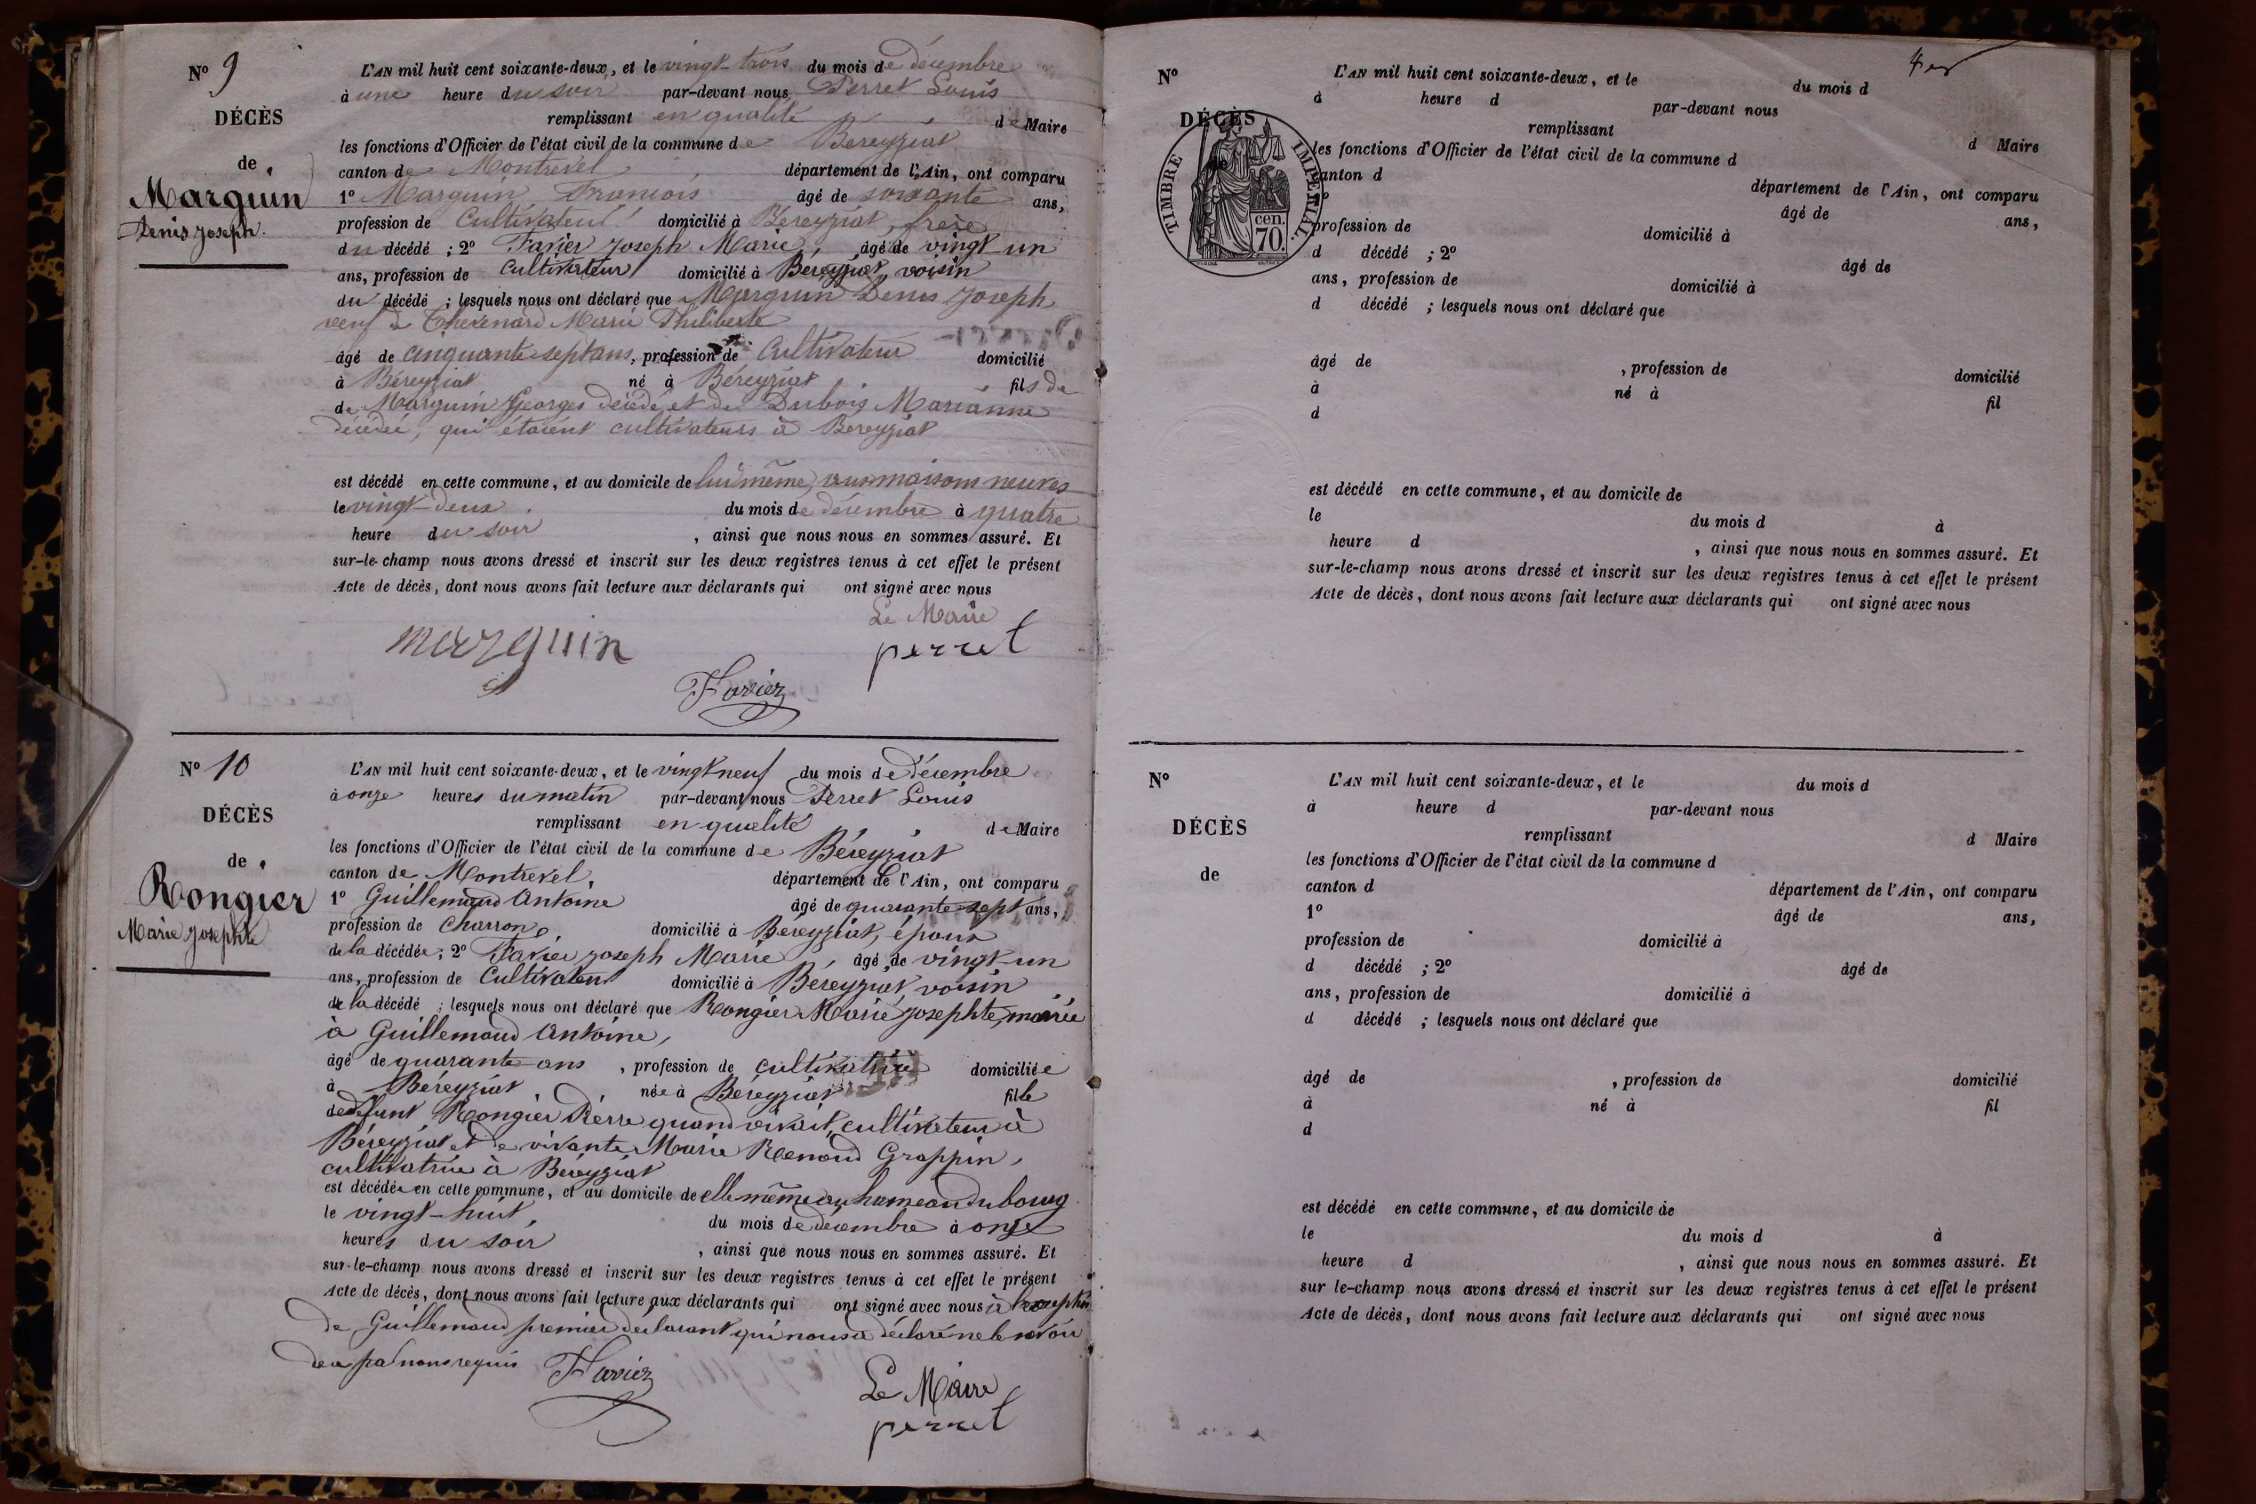 N° 9
DÉCÈS
de
Marguin
Denis Joseph.
L'AN mil huit cent soixante-deux, et le vingt-trois du mois de décembre
à une heure du soir par-devant nous Perret Louis
remplissant en qualité de Maire
les fonctions d'Officier de l'état civil de la commune de Béreyziat
canton de Montrevel département de l'Ain, ont comparu
1° Marguin François âgé de soixante ans,
profession de Cultivateur domicilié à Béreyziat, frère
du décédé ; 2° Favier Joseph Marie, âgé de vingt un
ans, profession de Cultivateur domicilié à Béreyziat, voisin
du décédé ; lesquels nous ont déclaré que Marguin Denis Joseph
veuf de Thevenard Marie Philiberte
âgé de cinquante sept ans, profession de Cultivateur domicilié
à Béreyziat né à Béreyziat fils de
de Marguin Georges décédé et de Dubois Marianne
décédée, qui étaient cultivateurs à Béreyziat
est décédé en cette commune, et au domicile de lui même, aux maisons neuves
le vingt-deux du mois de décembre à quatre
heure du soir, ainsi que nous nous en sommes assuré. Et
sur-le-champ nous avons dressé et inscrit sur les deux registres tenus à cet effet le présent
Acte de décès, dont nous avons fait lecture aux déclarants qui ont signé avec nous
Le Maire
marguin perret
Favier
N° 10
DÉCÈS
de
Rongier
Marie Josephte
L'AN mil huit cent soixante-deux, et le vingt neuf du mois de décembre
à onze heures du matin par-devant nous Perret Louis
remplissant en qualité de Maire
les fonctions d'Officier de l'état civil de la commune de Béreyziat
canton de Montrevel département de l'Ain, ont comparu
1° Guillemaud Antoine âgé de quarante sept ans,
profession de Charron, domicilié à Béreyziat, époux
de la décédée ; 2° Favier Joseph Marie âgé de vingt-un
ans, profession de Cultivateur domicilié à Béreyziat voisin
de la décédé ; lesquels nous ont déclaré que Rongier Marie Josephte, mariée
à Guillemaud Antoine,
âgé de quarante ans, profession de cultivatrice domiciliée
à Béreyziat née à Béreyziat fille
de défunt Rongier Pierre quand vivait cultivateur à
Béreyziat et de vivante Marie Renoud Grappin,
cultivatrice à Béreyziat
est décédée en cette commune, et au domicile de elle même au hameau du bourg
le vingt-huit, du mois de décembre à onze
heures du soir, ainsi que nous nous en sommes assuré. Et
sur-le-champ nous avons dressé et inscrit sur les deux registres tenus à cet effet le présent
Acte de décès, dont nous avons fait lecture aux déclarants qui ont signé avec nous à l'exception
de Guillemaud premier déclarant qui nous a déclaré ne le savoir
de ce par nous requis Favier
Le Maire
perret
N°
DÉCÈS
TIMBRE IMPÉRIAL.
cen.
70.
L'AN mil huit cent soixante-deux, et le du mois d
à heure d par-devant nous
remplissant d Maire
les fonctions d'Officier de l'état civil de la commune d
canton d département de l'Ain, ont comparu
âgé de ans,
profession de domicilié à
d décédé ; 2° âgé de
ans, profession de domicilié à
d décédé ; lesquels nous ont déclaré que
âgé de , profession de domicilié
à né à fil
d
est décédé en cette commune, et au domicile de
le du mois d à
heure d , ainsi que nous nous en sommes assuré. Et
sur-le-champ nous avons dressé et inscrit sur les deux registres tenus à cet effet le présent
Acte de décès, dont nous avons fait lecture aux déclarants qui ont signé avec nous
N°
DÉCÈS
de
L'AN mil huit cent soixante-deux, et le du mois d
à heure d par-devant nous
remplissant d Maire
les fonctions d'Officier de l'état civil de la commune d
canton d département de l'Ain, ont comparu
1° âgé de ans,
profession de domicilié à
d décédé ; 2° âgé de
ans, profession de domicilié à
d décédé ; lesquels nous ont déclaré que
âgé de , profession de domicilié
à né à fil
d
est décédé en cette commune, et au domicile de
le du mois d à
heure d , ainsi que nous nous en sommes assuré. Et
sur le-champ nous avons dressé et inscrit sur les deux registres tenus à cet effet le présent
Acte de décès, dont nous avons fait lecture aux déclarants qui ont signé avec nous